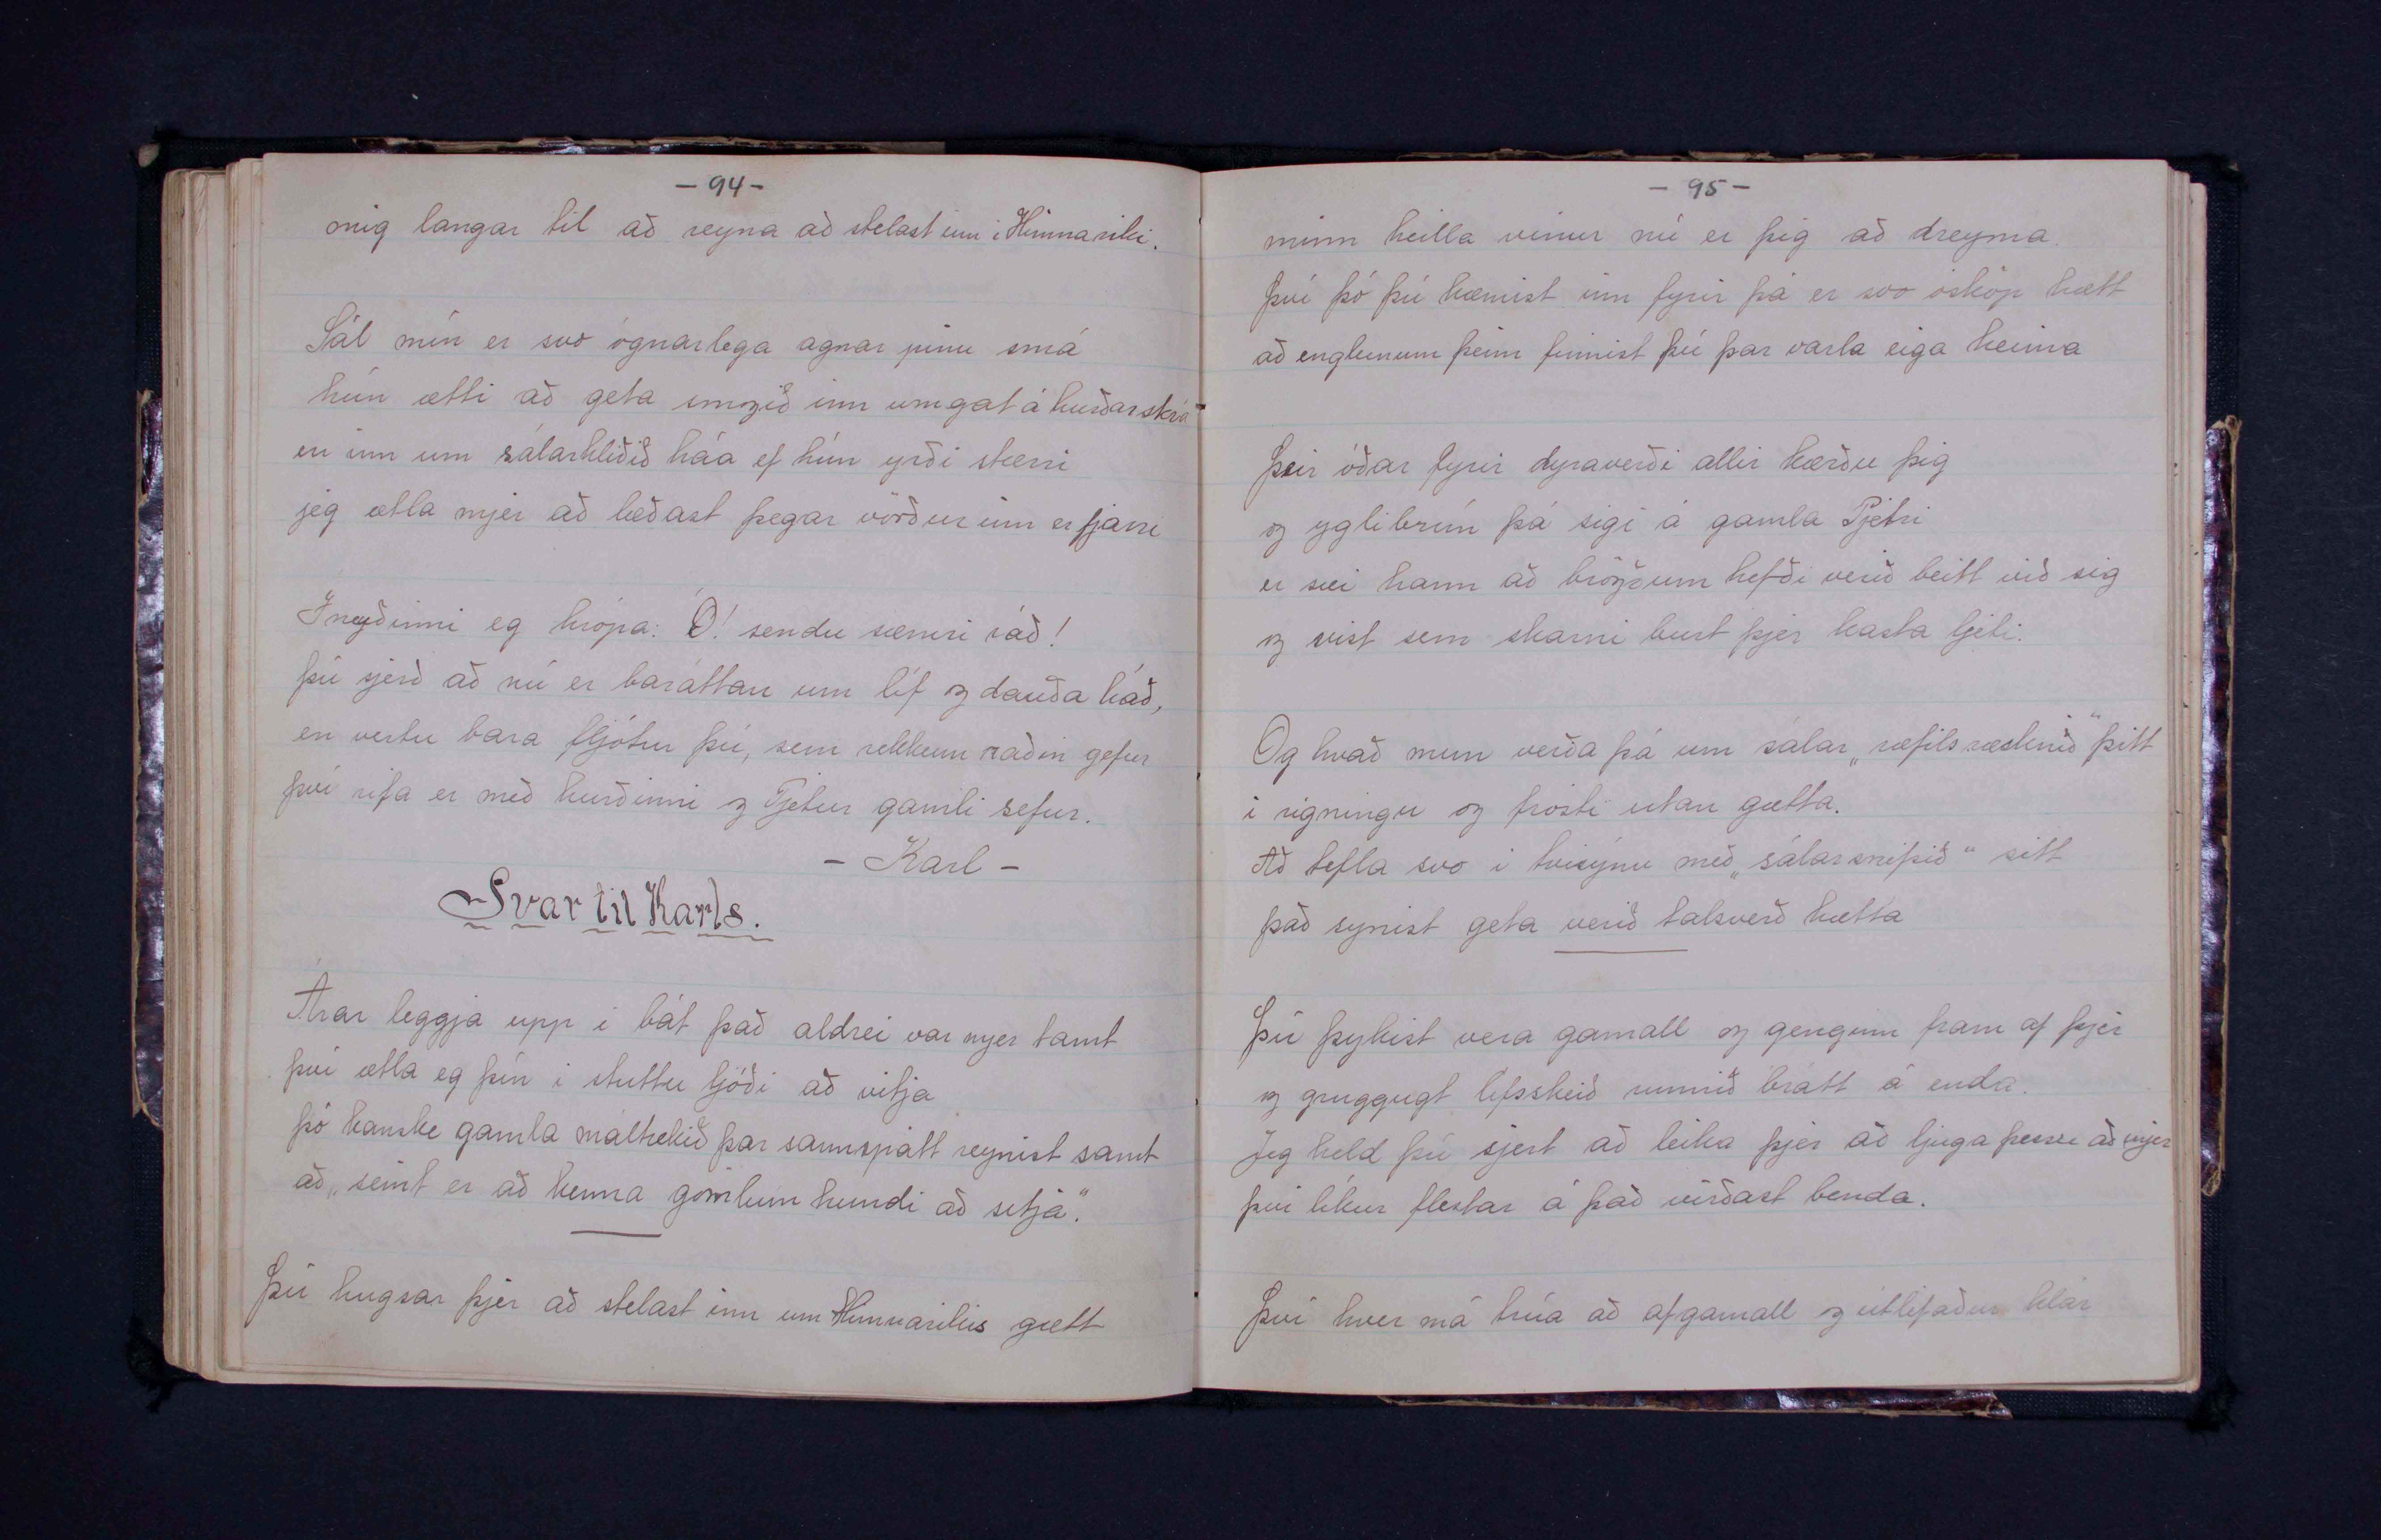 - 94 -
mig langar til að reyna að stelast inn i Himnariki.
Sál mín er svo ógnarlega agnar pinu smá
hún ætti að geta smogið inn umgat á hurðarskrá
en inn um sálarhliðið háa ef hún yrði stærri
jeg ætla mjer að læðast þegar vörðurinn er fjarri
Í neyðinni eg hrópa: Ó! sendu sæmri ráð!
þú sjerð að nú er baráttan um líf og dauða háð,
en vertu bara fljótur þú, sem rekkum ráðin gefur
því rifa er með hurðinni og Pjetur gamli sefur.
- Karl -
Svar til Karls.
Árar leggja upp i bát það aldrei var mjer tamt
því ætla eg þín i stuttu ljóði að vitja
þó kanske gamla máltækið þar sannspátt reynist samt
að „seint er að kenna gömlum hundi að sitja".
Þú hugsar þjer að stelast inn um Himnarikis gætt
- 95 -
minn heilla vinur nú er þig að dreyma.
Því þó þú kæmist inn fyrir þá er svo óskop hætt
að englunum þeim finnist þú þar varla eiga heima
Þeir óðar fyrir dyraverði allir kærðu þig
og yglibrún þá sigi á gamla Pjetri
er sæi hann að brögðum hefði verið beitt við sig
og vist sem skarni burt þjer kasta ljeti.
Og hvað mun verða þá um sálar „ræfils ræsknið" þitt
i rigningu og frosti utan gætta.
Að tefla svo i tvisýnu með „sálarsnifsið" sitt
það synist geta verið talsverð hætta
Þú þykist vera gamall og genginn fram af þjer
og gruggugt lifsskeið runnið brátt á enda.
Jeg held þú sjert að leika þjer að ljuga þessu að mjer
því líkur flestar á það virðast benda.
Því hver má trúa að afgamall og útlifaður klár